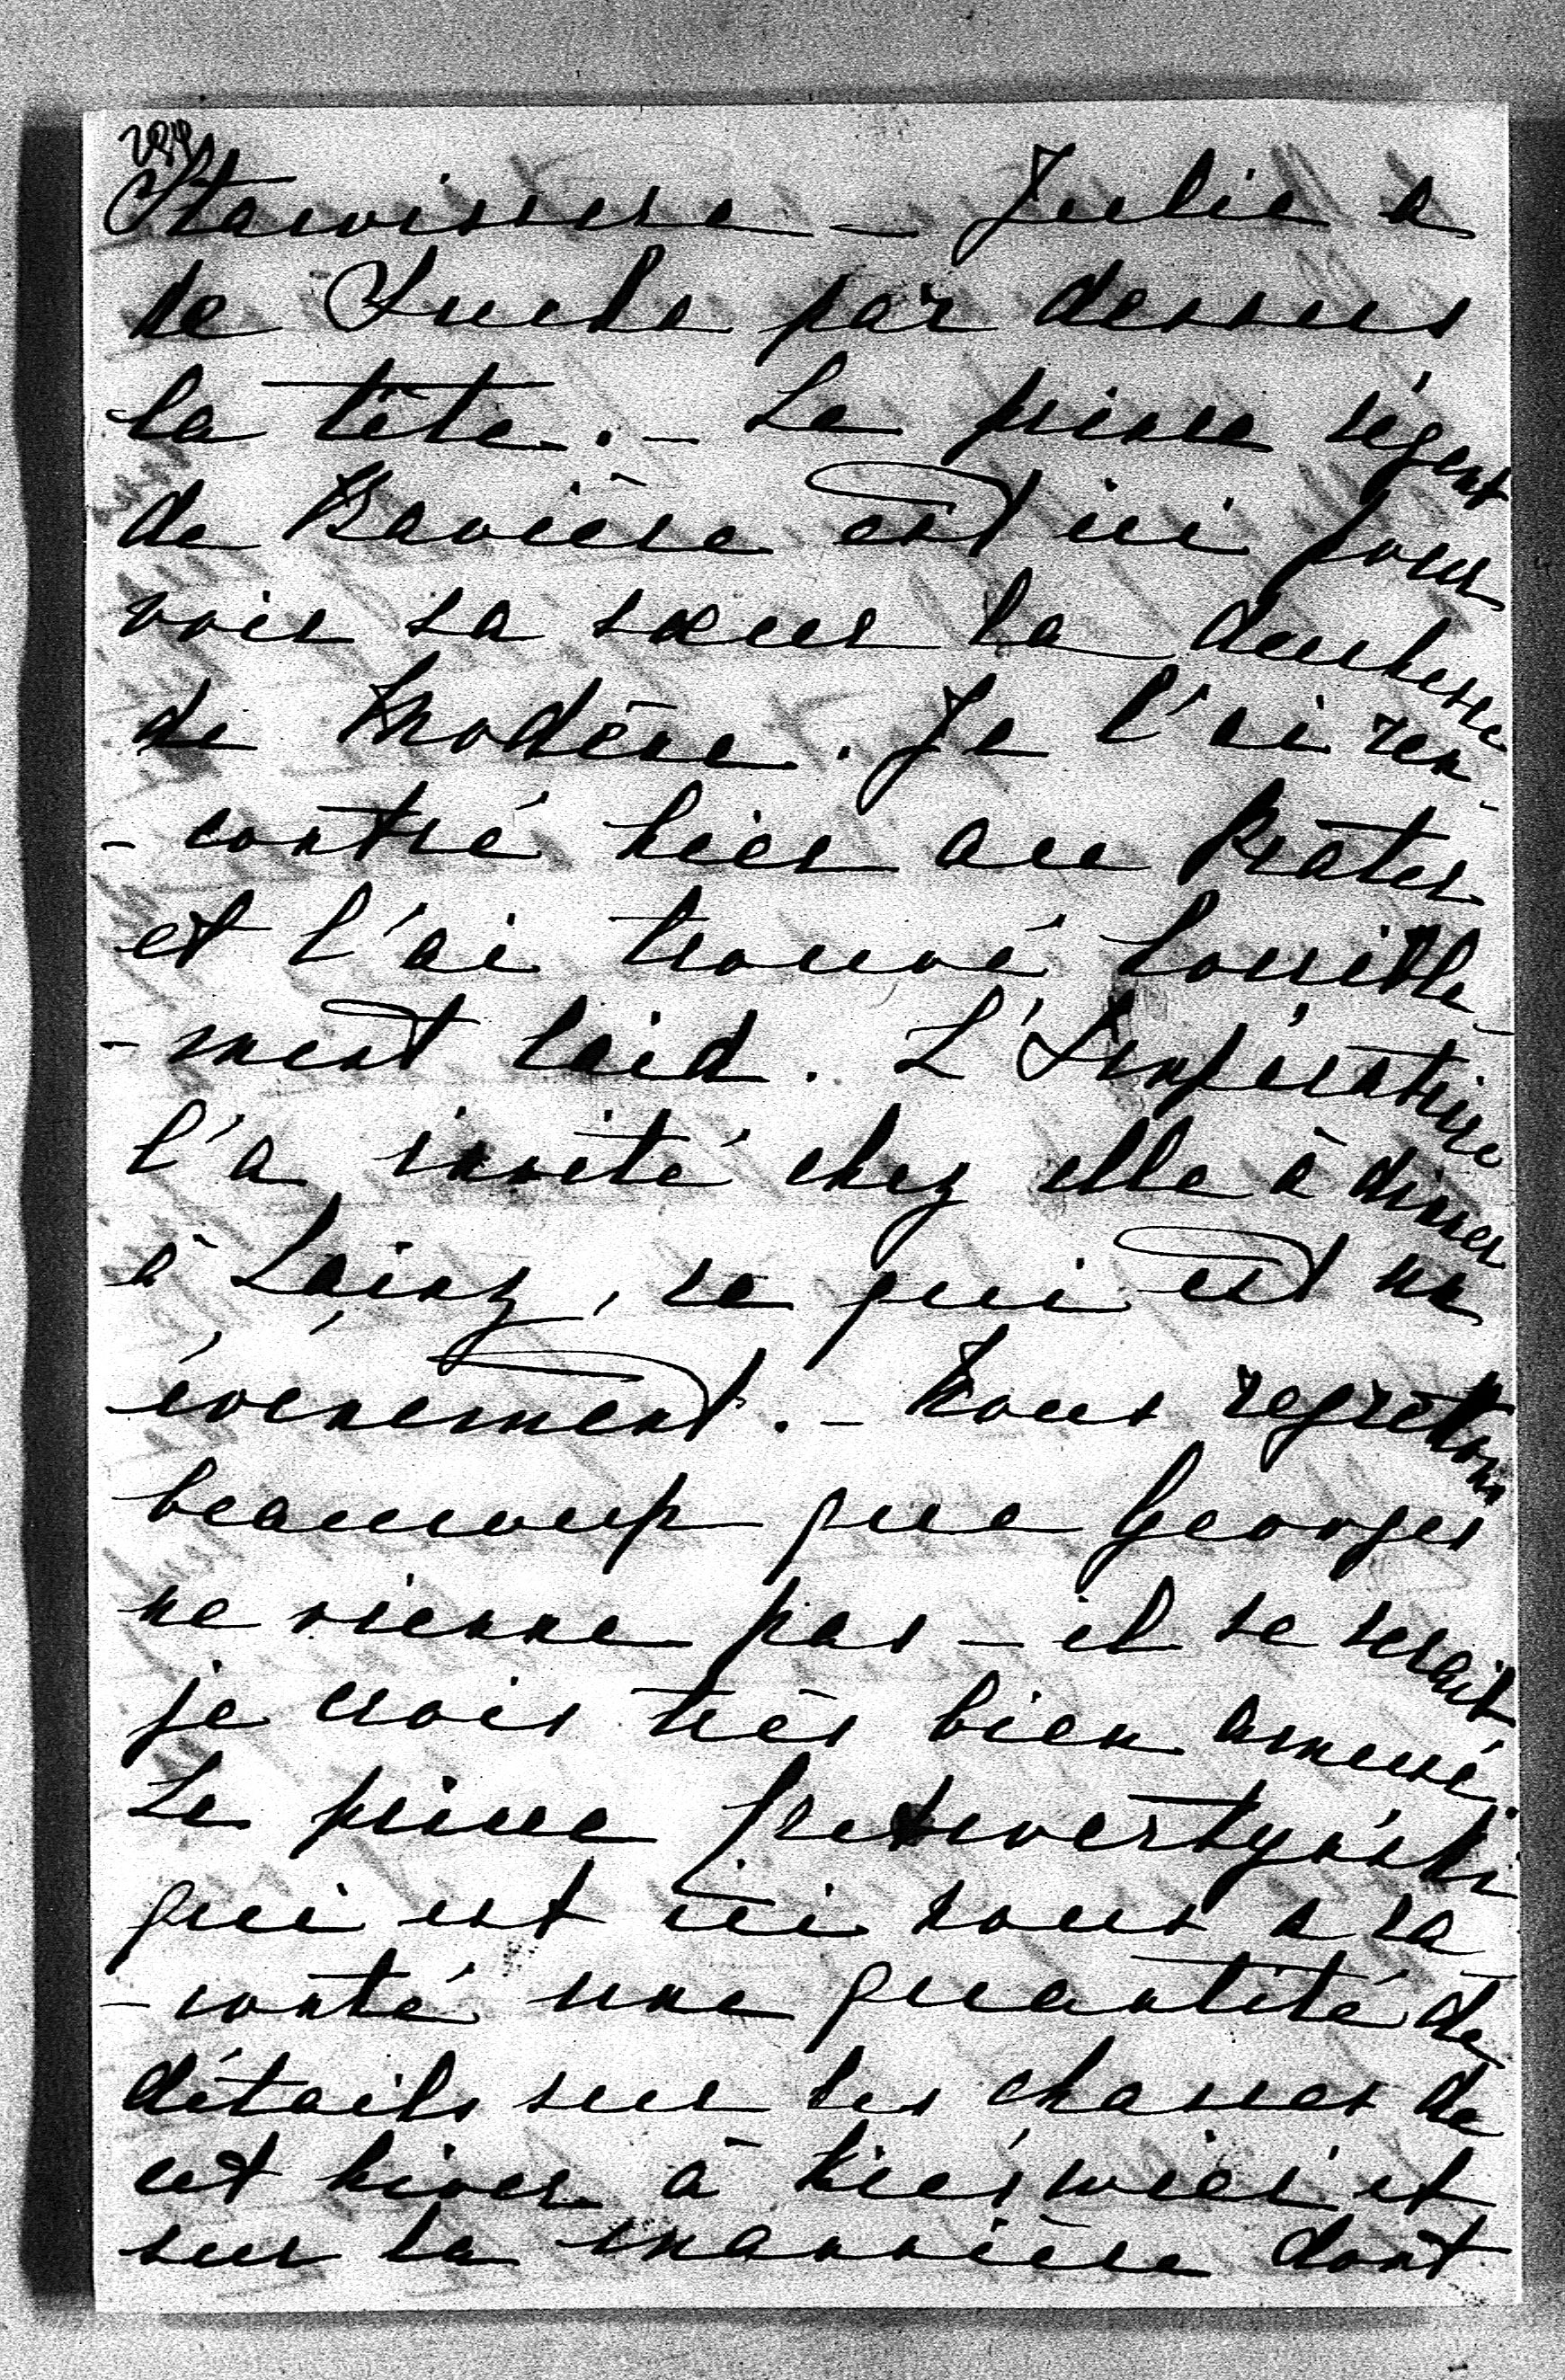 Starvissera — Julie a
de Sucha par dessus
la tête. — Le prince régent
de Bavière est ici pour
voir sa sœur la duchesse
de Modène. Je l'ai ren-
- contré hier au Prater
et l'ai trouvé horrible-
- ment laid. L'Impératrice
l'a invité chez elle à diner
à Lainz, ce qui est un
évènement. — Nous regrettons
beaucoup que Georges
ne vienne pas — il se serait
je crois très bien amusé.
Le prince Czetwertyński
qui est ici nous a ra-
- conté une quantité de
détails sur les chasses de
cet hiver à Nieświeś et
sur la mannière dont